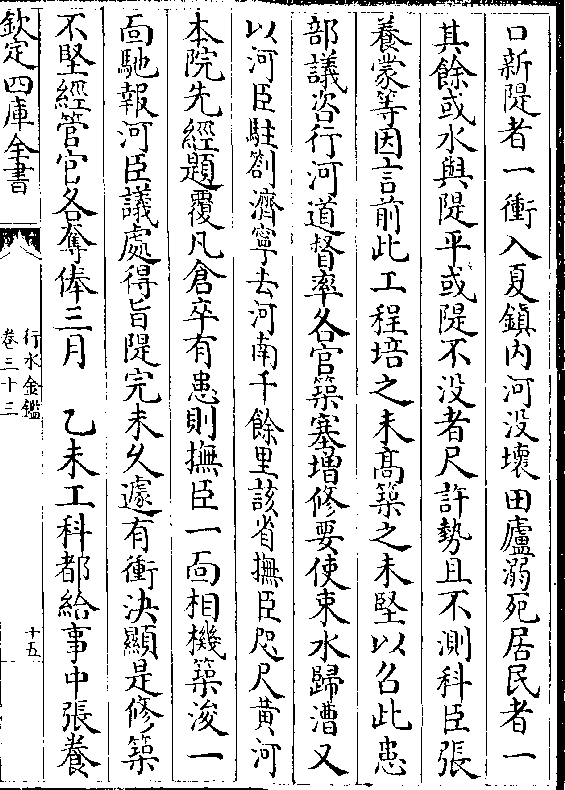 口新隄者一衝入夏鎮内河没壞田廬溺死居民者一
其餘或水與隄平或隄不没者尺許勢且不測科臣張
養蒙等因言前此工程培之未髙築之未堅以召此患
部議咨行河道督率各官築塞增修要使東水歸漕又
以河臣駐劄濟寧去河南千餘里該省撫臣咫尺黄河
本院先經題覆凡倉卒有患則撫臣一面相機築浚一
面馳報河臣議處得旨隄完未久遽有衝決顯是修築
不堅經管官各奪俸三月　乙未工科都給事中張養
欽定四庫全書
行水金鑑
卷三十三
十五